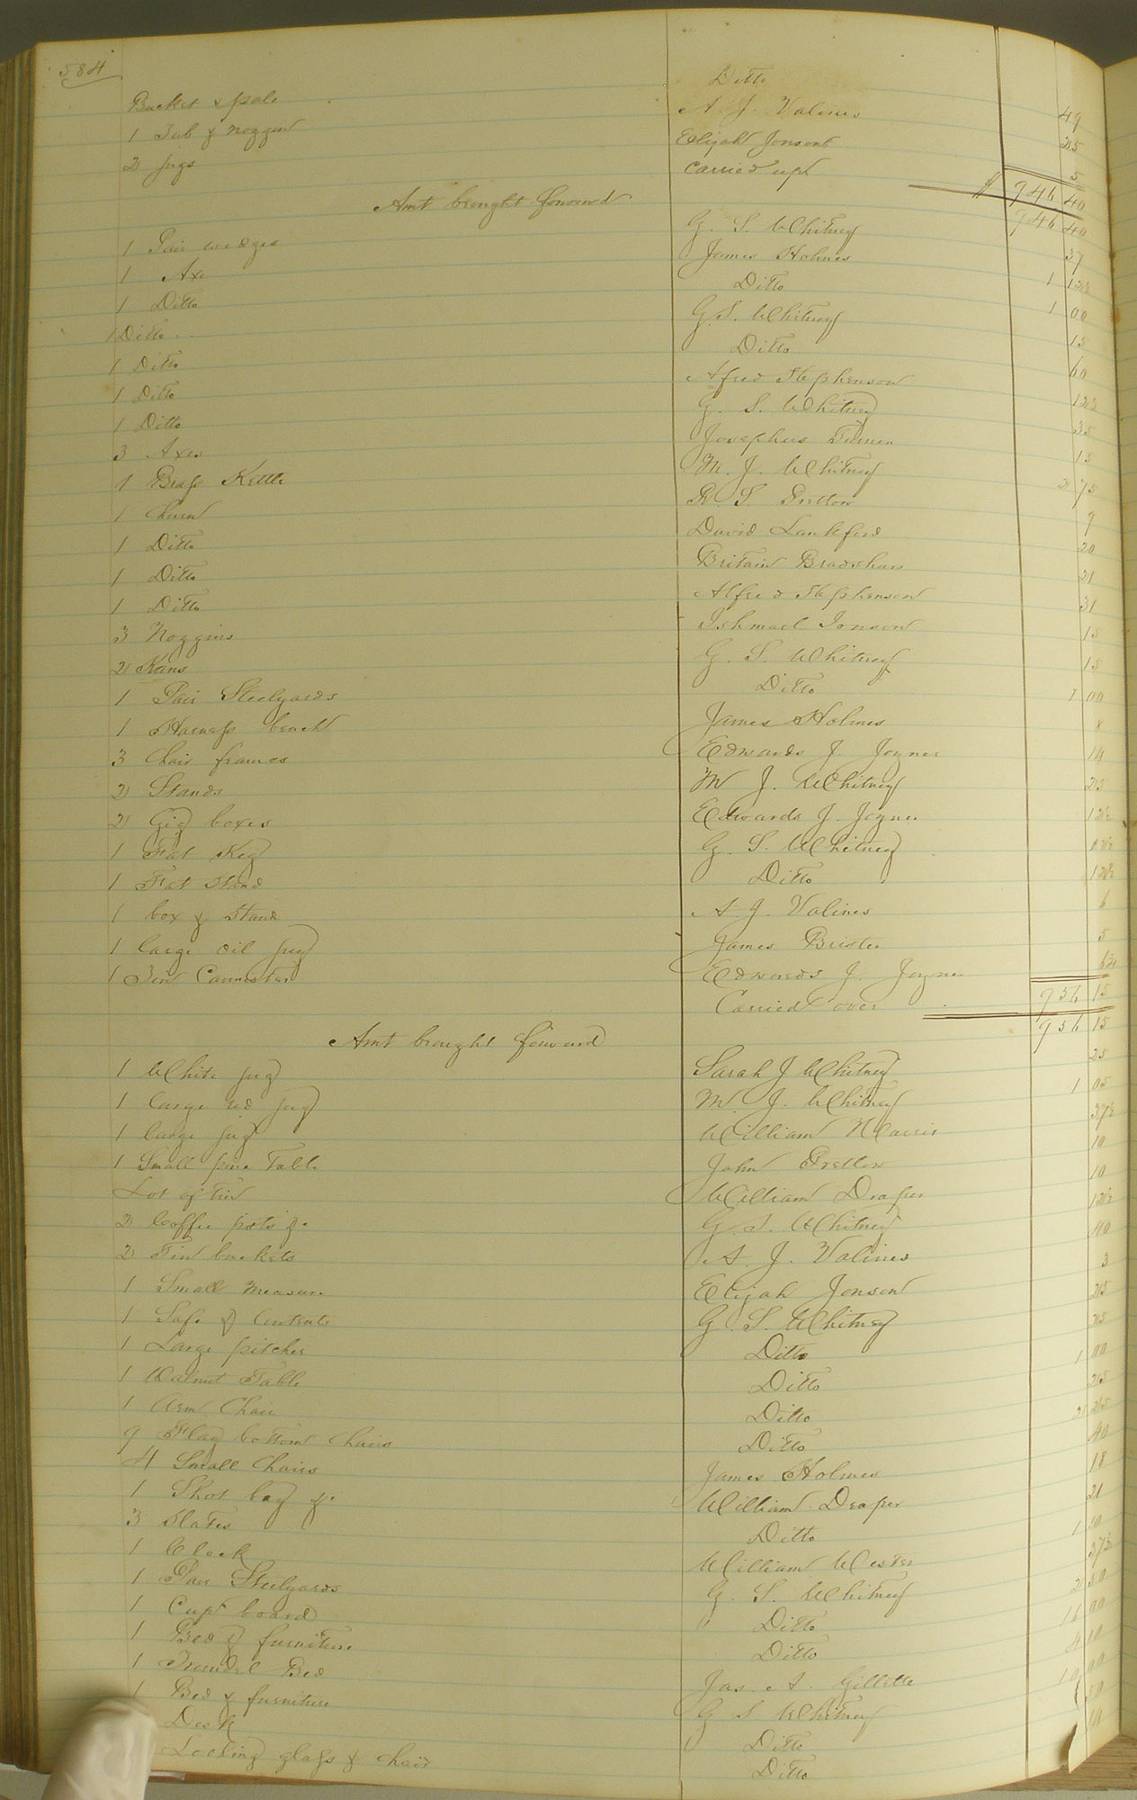 584
Ditto
Bucket & pale A. J. Valines 49
1 Tub & noggin Elijah Jonson 25
2 jugs carried up 5
$ 946 40
Amt brought forward 946 40
1 Pair wedges G. S. Whitney 37
1 Axe James Holmes 1 12½
1 Ditto Ditto 1 00
1 Ditto G. S. Whitney 15
1 Ditto Ditto 60
1 Ditto Alfred Stephenson 12½
1 Ditto G. S. Whitney 25
3 Axes Josephus 15
1 Brass Kettle M. J. Whitney 2 75
1 Churn R. S. 9
1 Ditto David Lankford 20
1 Ditto Britain Bradshaw 21
1 Ditto Alfred Stephenson 31
3 Noggins Ishmael Jonson 15
2 Kans G. S. Whitney 15
1 Pair Steelyards Ditto 1 00
1 Harness bench James Holmes
3 Chair frames Edwards J. Joyner 14
2 Stands M J. Whitney 25
2 Gig boxes Edwards J. Joyner 12½
1 Fat Keg G. S. Whitney
1 Fat stand Ditto 12½
1 box & Stand A. J. Valines 6
1 large oil jug James Brister 5
1 Tin Cannister Edwards J. Joyner
Carried over 956 15
Amt brought forward 956 15
1 White jug Sarah J Whitney 25
1 large red jug M. J. Whitney 1 05
1 large jug William Harris 37½
1 Small pine Table John 10
Lot of tin William Draper 10
2 Coffee pots &c G. S. Whitney 12½
2 Tin buckets A. J. Valines 40
1 Small measure Elijah Jonson 3
1 Safe & Contents G. S. Whitney 25
1 Large pitcher Ditto 25
1 Walnut Table Ditto 1 00
1 Arm Chair Ditto 25
9 Flag bottom Chairs Ditto
4 Small Chairs James Holmes 40
1 Shot bag &c William Draper 18
3 Slates Ditto 21
1 Clock William Wester 1 10
1 Pair Steelyards G. S. Whitney 37½
1 Cup board Ditto
1 Bed & furniture Ditto
1 Trundel Bed Jas. A. Gillette
1 Bed & furniture G S Whitney
Desk Ditto
Looking glass & chair Ditto